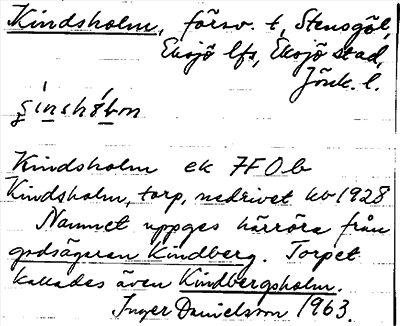 Kindsholm, försv. t, Stensgöl,
Eksjö lfs, Eksjö stad,
Jönk. l.
Kindsholm ek 7F0b
Kindsholm, torp, nedrivet kb 1928
Namnet uppges härröra från
godsägaren Kindberg. Torpet
kallades även Kindbergsholm.
Inger Danielsson 1963